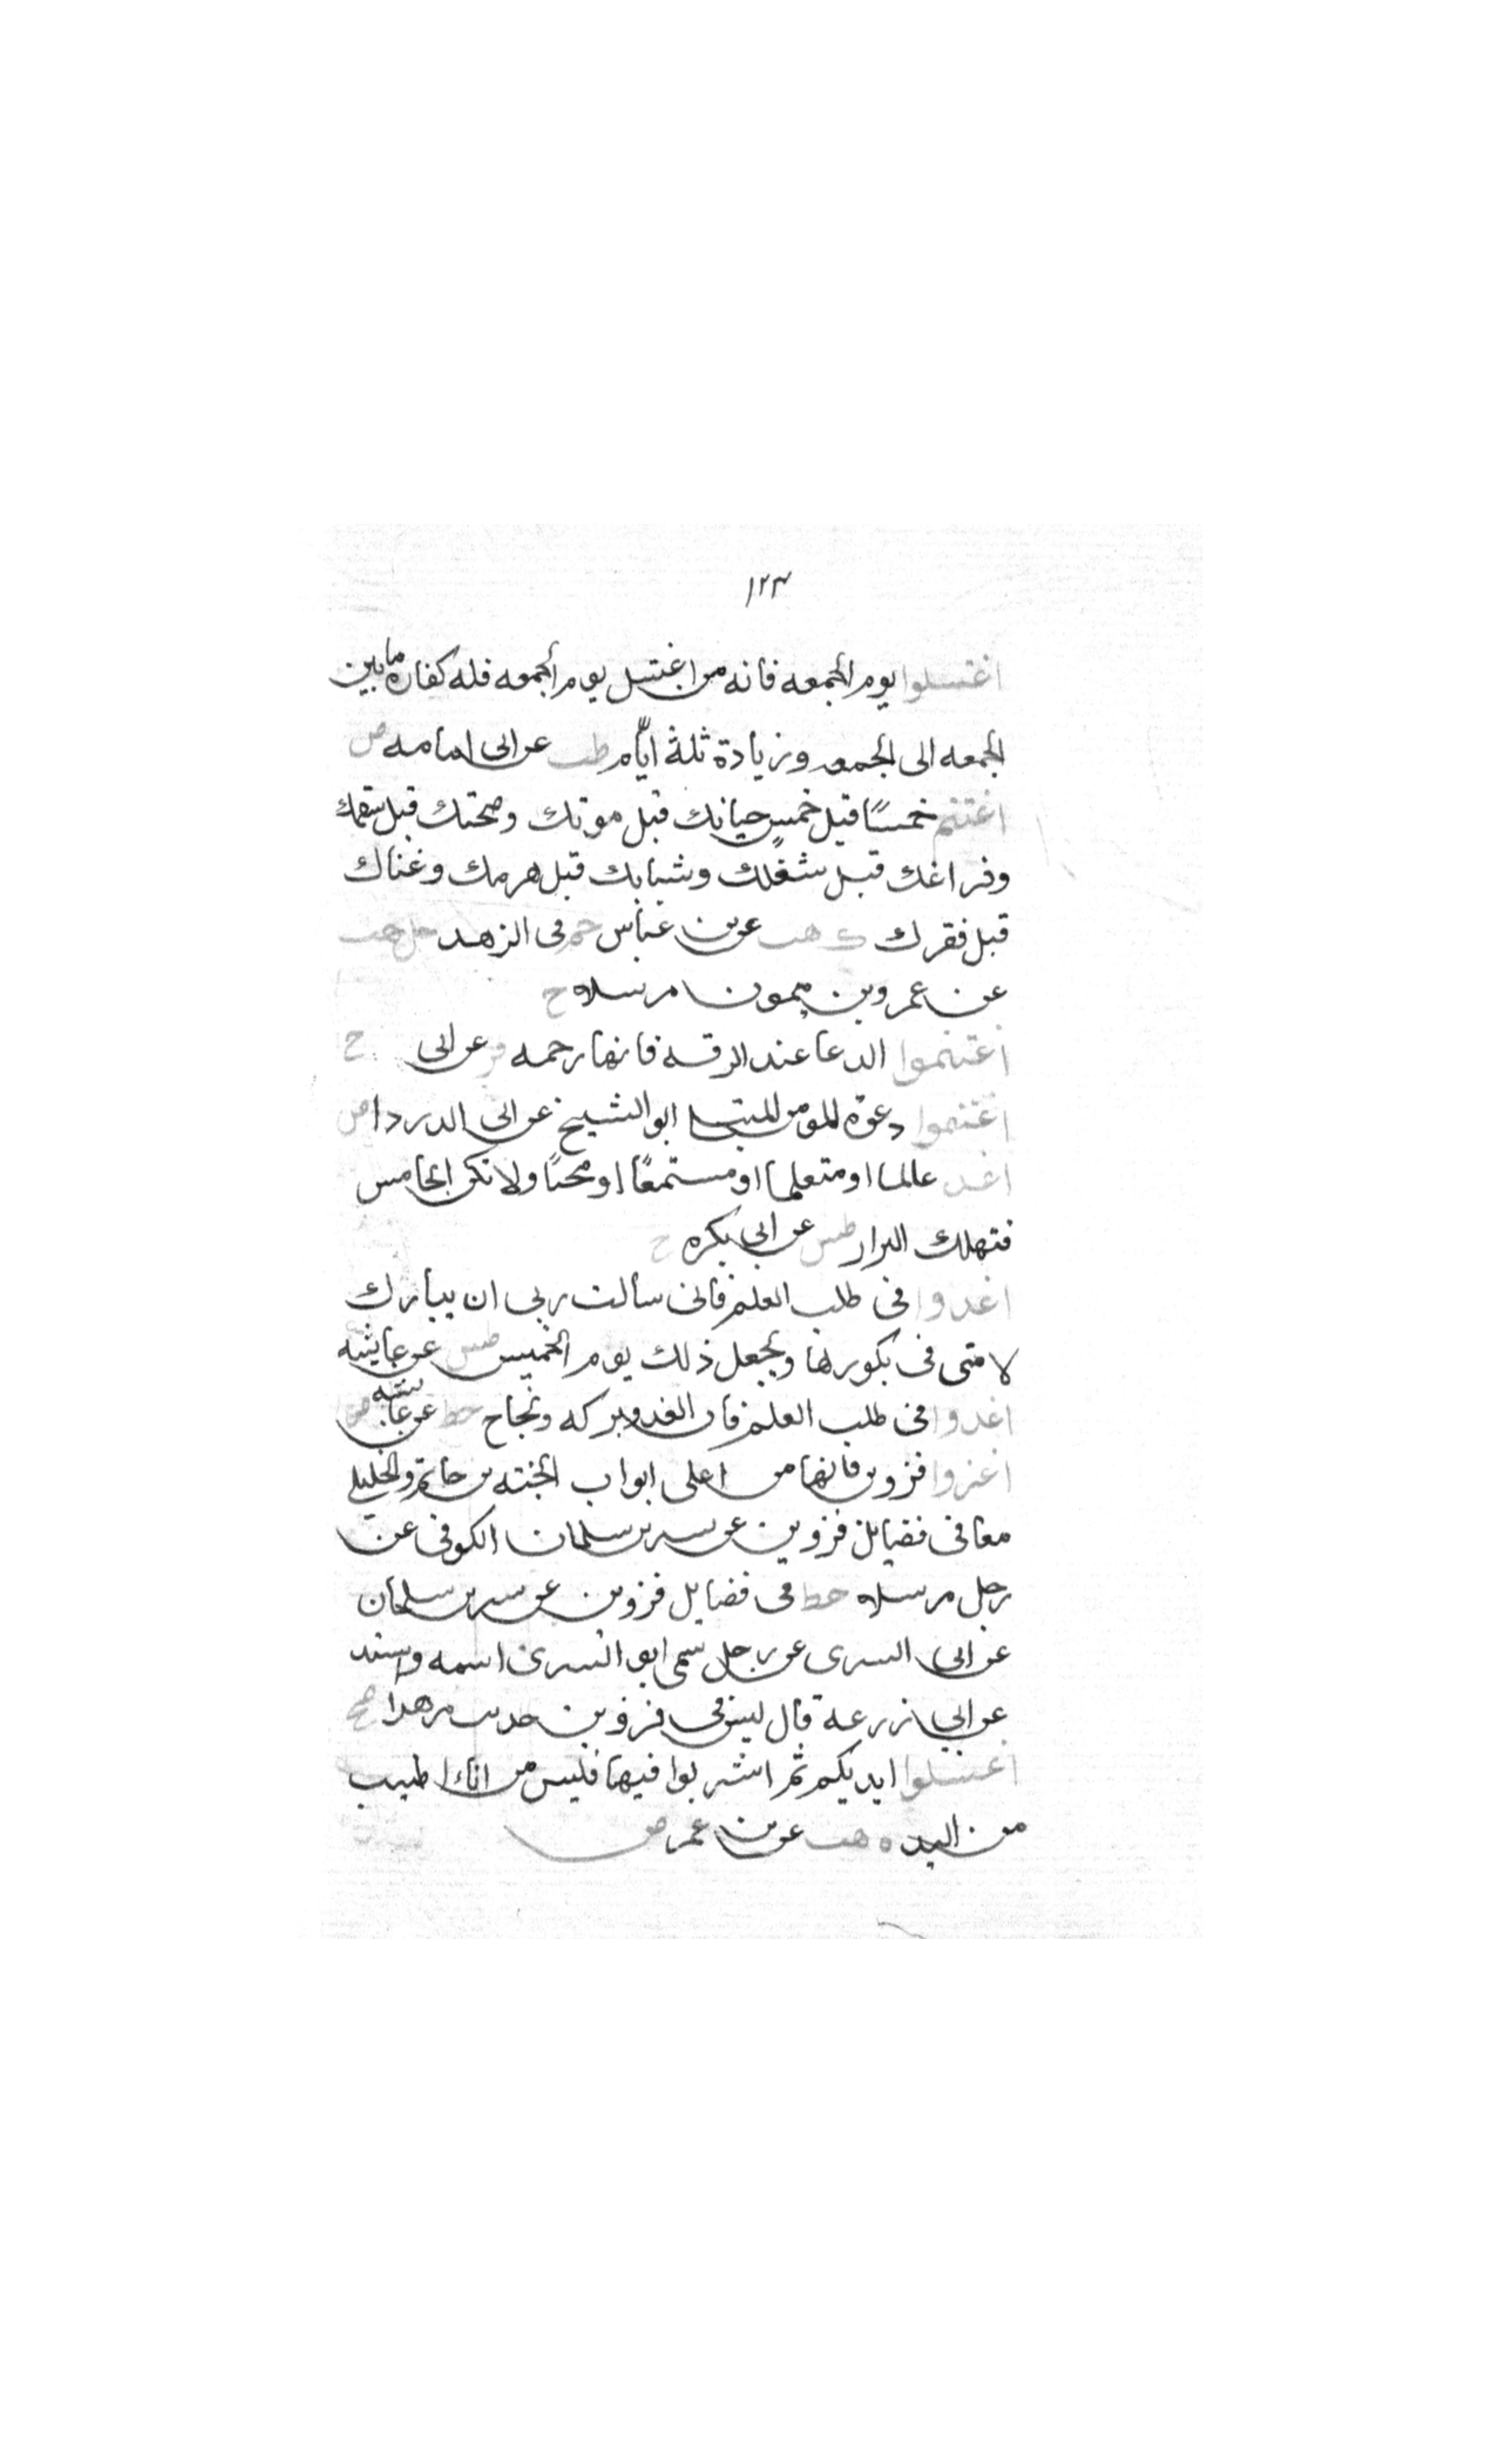 ١٢٣
اغتسلوا يوم الجمعه فانه من اغتسل يوم الجمعه فله كفاره ما بين
الجمعه الى الجمعه وزيادة ثلثة ايام طب عن ابى امامه ض
اغتنم خمسًا قبل خمسٍ حياتك قبل موتك وصحتك قبل سقمك
وفراغك قبل شغلك وشبابك قبل هرمك وغناك
قبل فقرك ك هب عن بن عباس حم فى الزهد حل هب
عن عمرو بن ميمون مرسلا ح
اغتنموا الدعا عند الرقه فانها رحمه فر عن ابى ح
اغتنموا دعوة المومن المبتلا ابو الشيخ عن ابى الدردا ض
اغد عالما او متعلما او مستمعًا او محبًا ولا تكن الخامس
فتهلك البزار طس عن ابى بكره ح
اغدوا فى طلب العلم فانى سالت ربى ان يبارك
لامتى فى بكورها ويجعل ذلك يوم الخميس طس عن عايشه
اغدوا فى طلب العلم فان الغدو بركه ونجاح خط عن عايشه ض
اغزوا قزوين فانها من اعلى ابواب الجنه بن حاتم والخليلى
معا فى فضايل قزوين عن بسر بن سلمان الكوفى عن
رجل مرسلا خط فى فضايل قزوين عن بسر بن سلمان
عن ابى السرى عن رجل سمى ابو السرى اسمه واسند
عن ابي زرعة قال ليس فى قزوين حديث من هذا صح
اغسلوا ايديكم ثم اشربوا فيها فليس من اناء اطيب
من اليد ه هب عن بن عمر ض